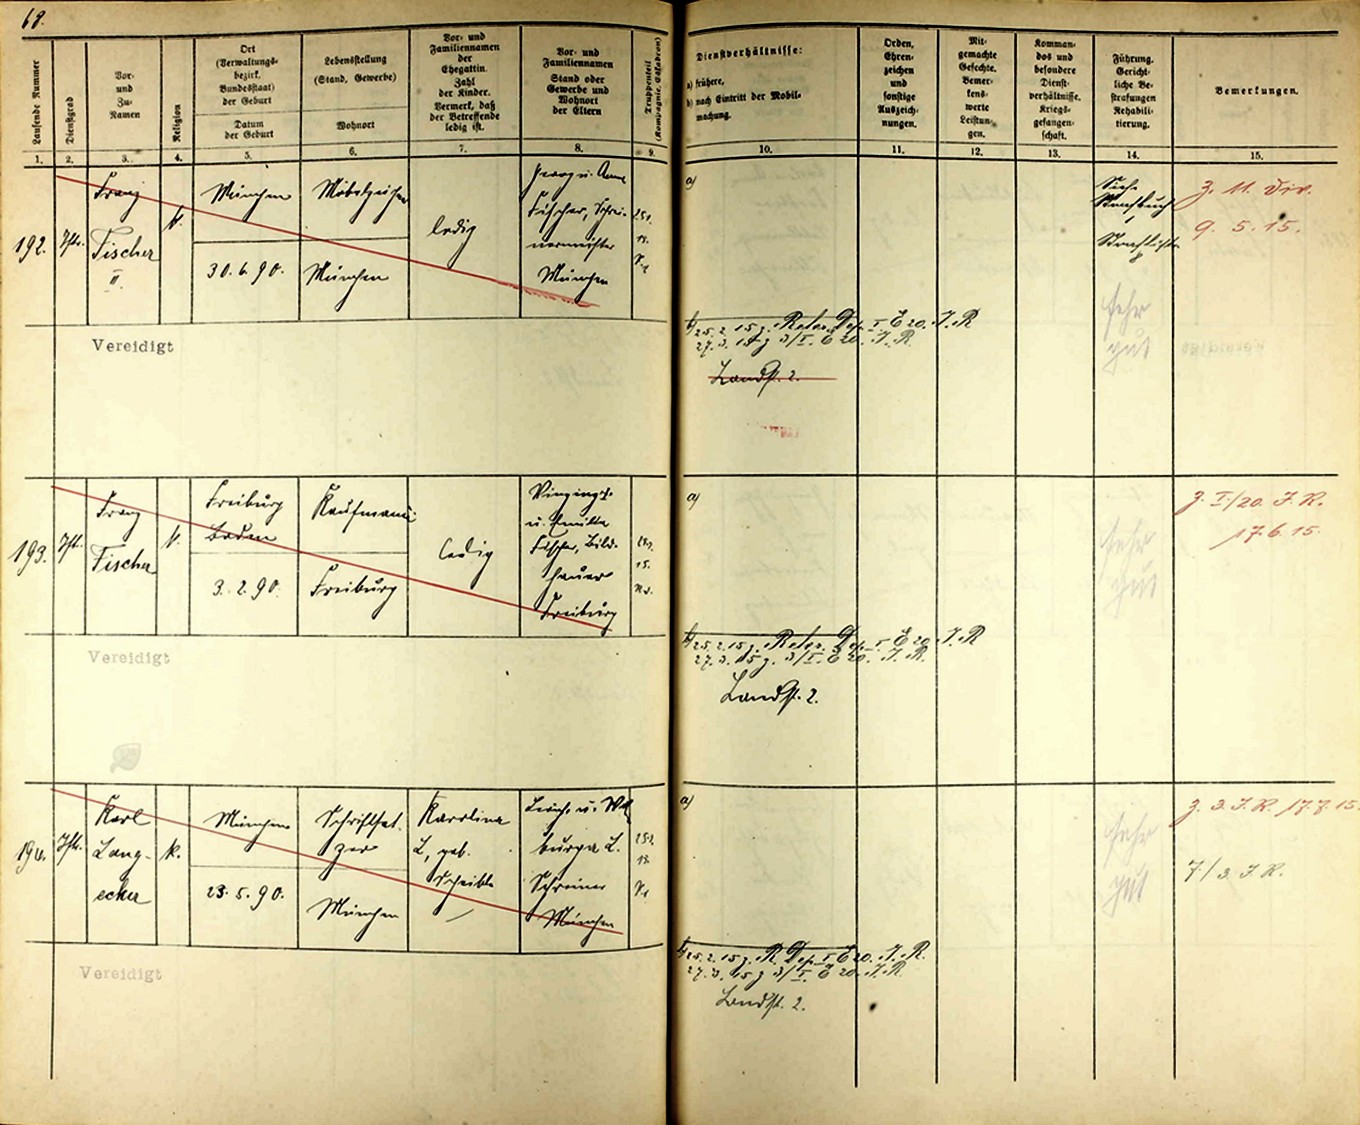 68.
Laufende Nummer
Dienstgrad
Vor-
und
Zu-
Namen
Religion
Ort
(Verwaltungs-
bezirk,
Bundesstaat)
der Geburt
Datum
der Geburt
Lebensstellung
(Stand, Gewerbe)
Wohnort
Vor- und
Familiennamen
der
Ehegattin.
Zahl
der Kinder.
Vermerk, daß
der Betreffende
ledig ist.
Vor- und
Familiennamen
Stand oder
Gewerbe und
Wohnort
der Eltern
Truppenteil
(Kompagnie, Eskadron)
Dienstverhältnisse:
a) frühere,
b) nach Eintritt der Mobil-
machung.
Orden,
Ehren-
zeichen
und
sonstige
Auszeich-
nungen.
Mit-
gemachte
Gefechte.
Bemer-
kens-
werte
Leistun-
gen.
Komman-
dos und
besondere
Dienst-
verhältnisse.
Kriegs-
gefangen-
schaft.
Führung.
Gericht-
liche Be-
strafungen
Rehabili-
tierung.
Bemerkungen.
1. 2. 3. 4. 5. 6. 7. 8. 9. 10. 11. 12. 13. 14. 15.
192.
Jstr.
Franz
Fischer
II.
k.
München
30. 6. 90.
München
ledig
Georg u. Anna
Fischer, Schrei-
nermeister
München
a)
b) 25. 2. 15 z. Rekr. Dep. I. E 20. J. R
27. 3. 15 z. 3/I. E 20. J. R.
Landst. 2.
Siehe
Strafbuch
sehr
gut
z. 11. Div.
9. 5. 15.
Vereidigt
193.
Jstr.
Franz
Fischer
k.
Freiburg
Baden
3. 2. 90.
Kaufmann
Freiburg
ledig
u. Emilie
Fischer, Bild-
hauer
Freiburg
a)
b) 25. 2. 15 z. Rekr. Dep. I. E 20. J. R
27. 3. 15 z. 3/I. E 20. J. R.
Landst. 2.
sehr
gut
z. I./20. J. R.
17. 6. 15.
Vereidigt
194.
Jstr.
Karl
Lang-
ecker
k.
München
23. 5. 90.
Schriftset-
zer
München
Karolina
L., geb.
burga L.
Schreiner
München
a)
b) 25. 2. 15 z. R. Dep. I. E 20. J. R.
27. 3. 15 z. 3/I. E 20. J. R.
Landst. 2.
sehr
gut
z. 3. J. R. 17. 7. 15.
7./3. J. R.
Vereidigt